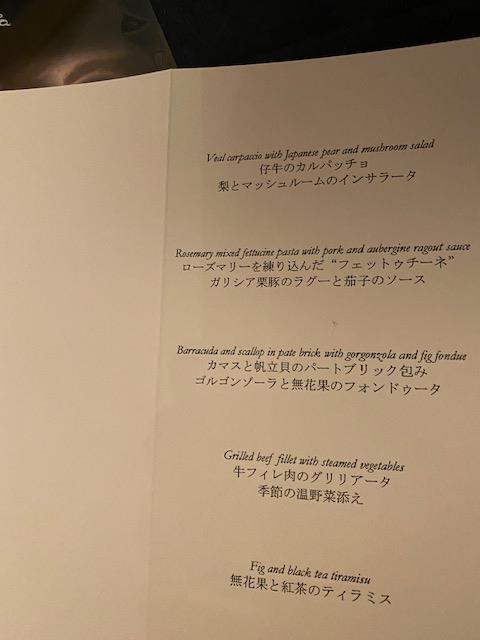 Veal carpaccio with Japanese pear and mushroom salad
仔牛のカルパッチョ
梨とマッシュルームのインサラータ
Rosemary mixed fettucine pasta with pork and aubergine ragout sauce
ローズマリーを練り込んだ “フェットゥチーネ”
ガリシア栗豚のラグーと茄子のソース
Barracuda and scallop in pate brick with gorgonzola and fig fondue
カマスと帆立貝のパートブリック包み
ゴルゴンゾーラと無花果のフォンドゥータ
Grilled beef fillet with steamed vegetables
牛フィレ肉のグリリアータ
季節の温野菜添え
Fig and black tea tiramisu
無花果と紅茶のティラミス